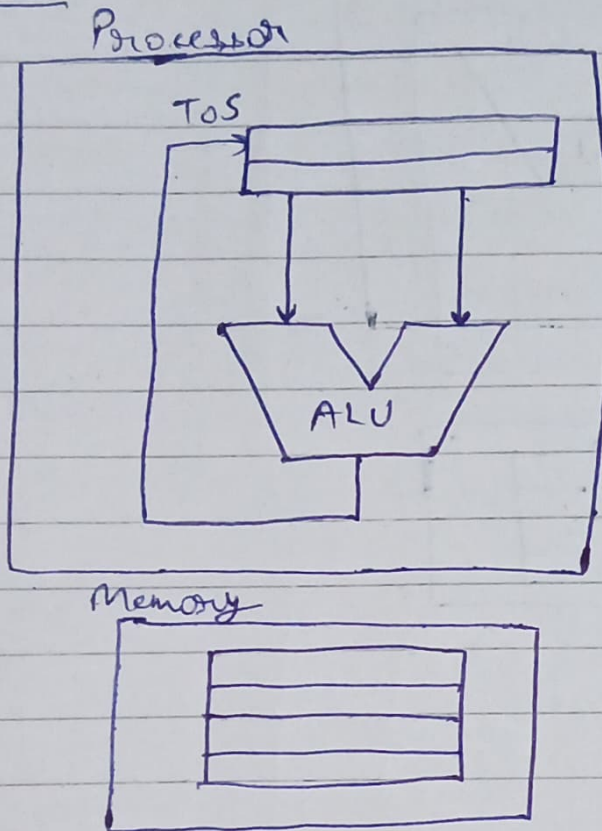 Processor
ToS
ALU
Memory